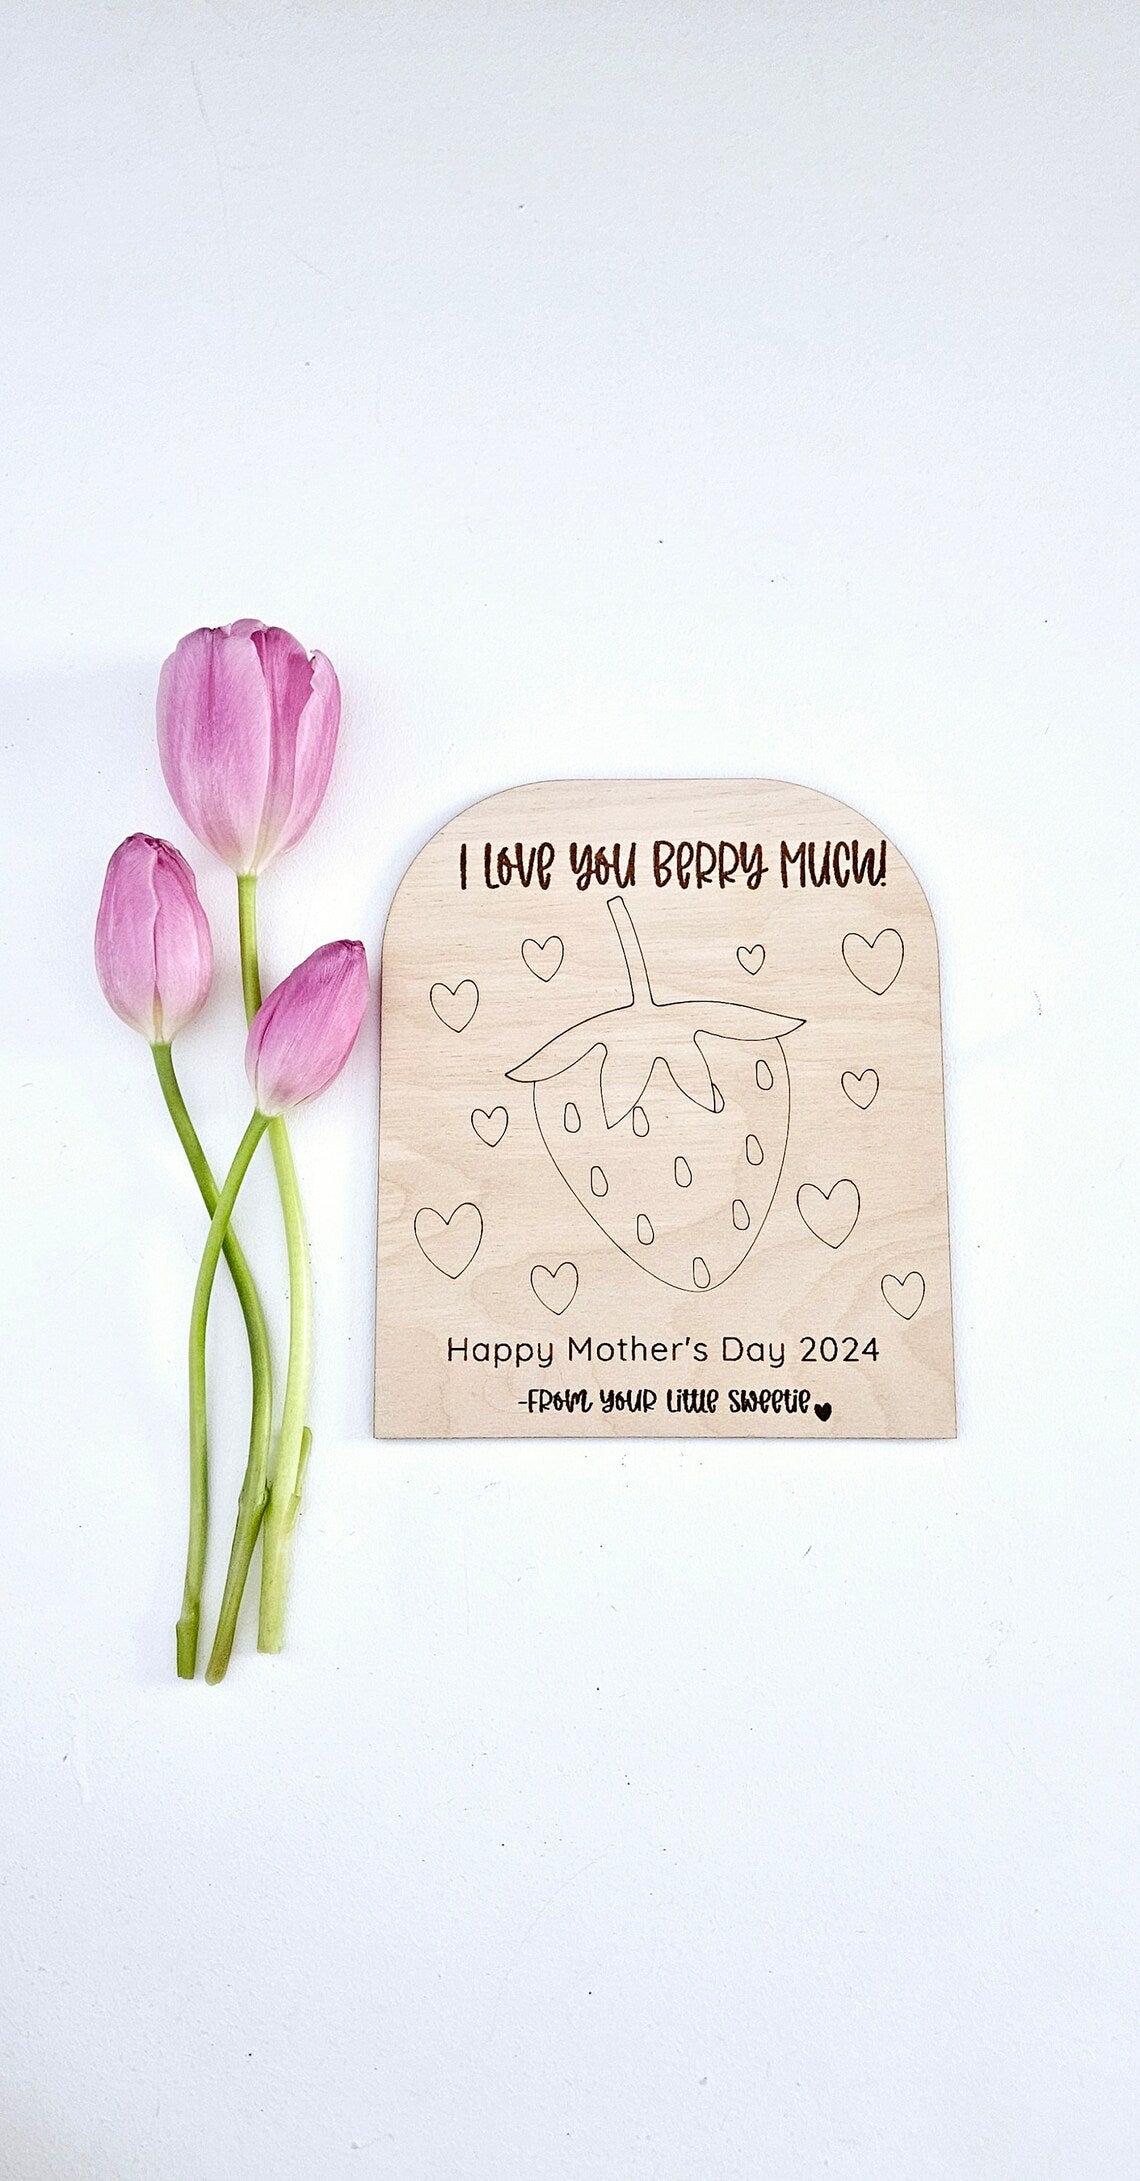 I LOVE YOU BERRY MUCH!
Happy Mother's Day 2024
-FROM YOUR LITTLE SWEETIE